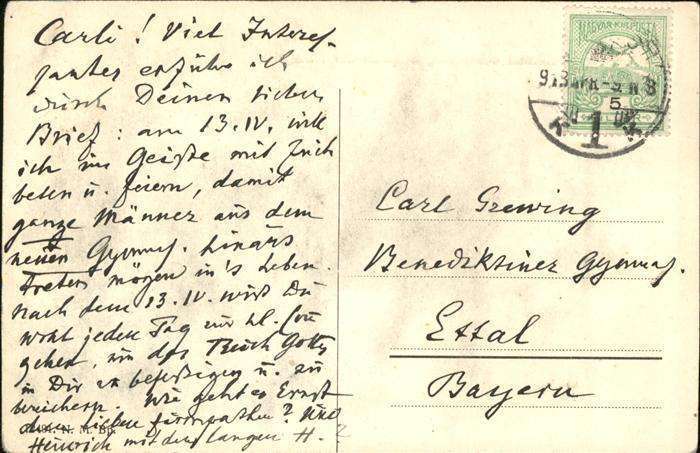 Carli! Viel Interes-
santes erfuhr ich
durch Deinen lieben
Brief: am 13. IV. will
ich im Geiste mit Euch
beten u. feiern, damit
ganze Männer aus dem
neuen Gymnas. hinaus
treten mögen in's Leben.
Nach dem 13. IV. wirst Du
wohl jeden Tag zur hl.
gehen, um das Reich Gottes
in Dir zu befestigen u. zu
bereichern. Wie geht es Ernst
dem lieben ? Und
Heinrich mit der langen H.?
N. M. Bp.
MAGYAR KIR. POSTA
913
5
1
Carl Grewing
Benediktiner Gymnas.
Ettal
Bayern